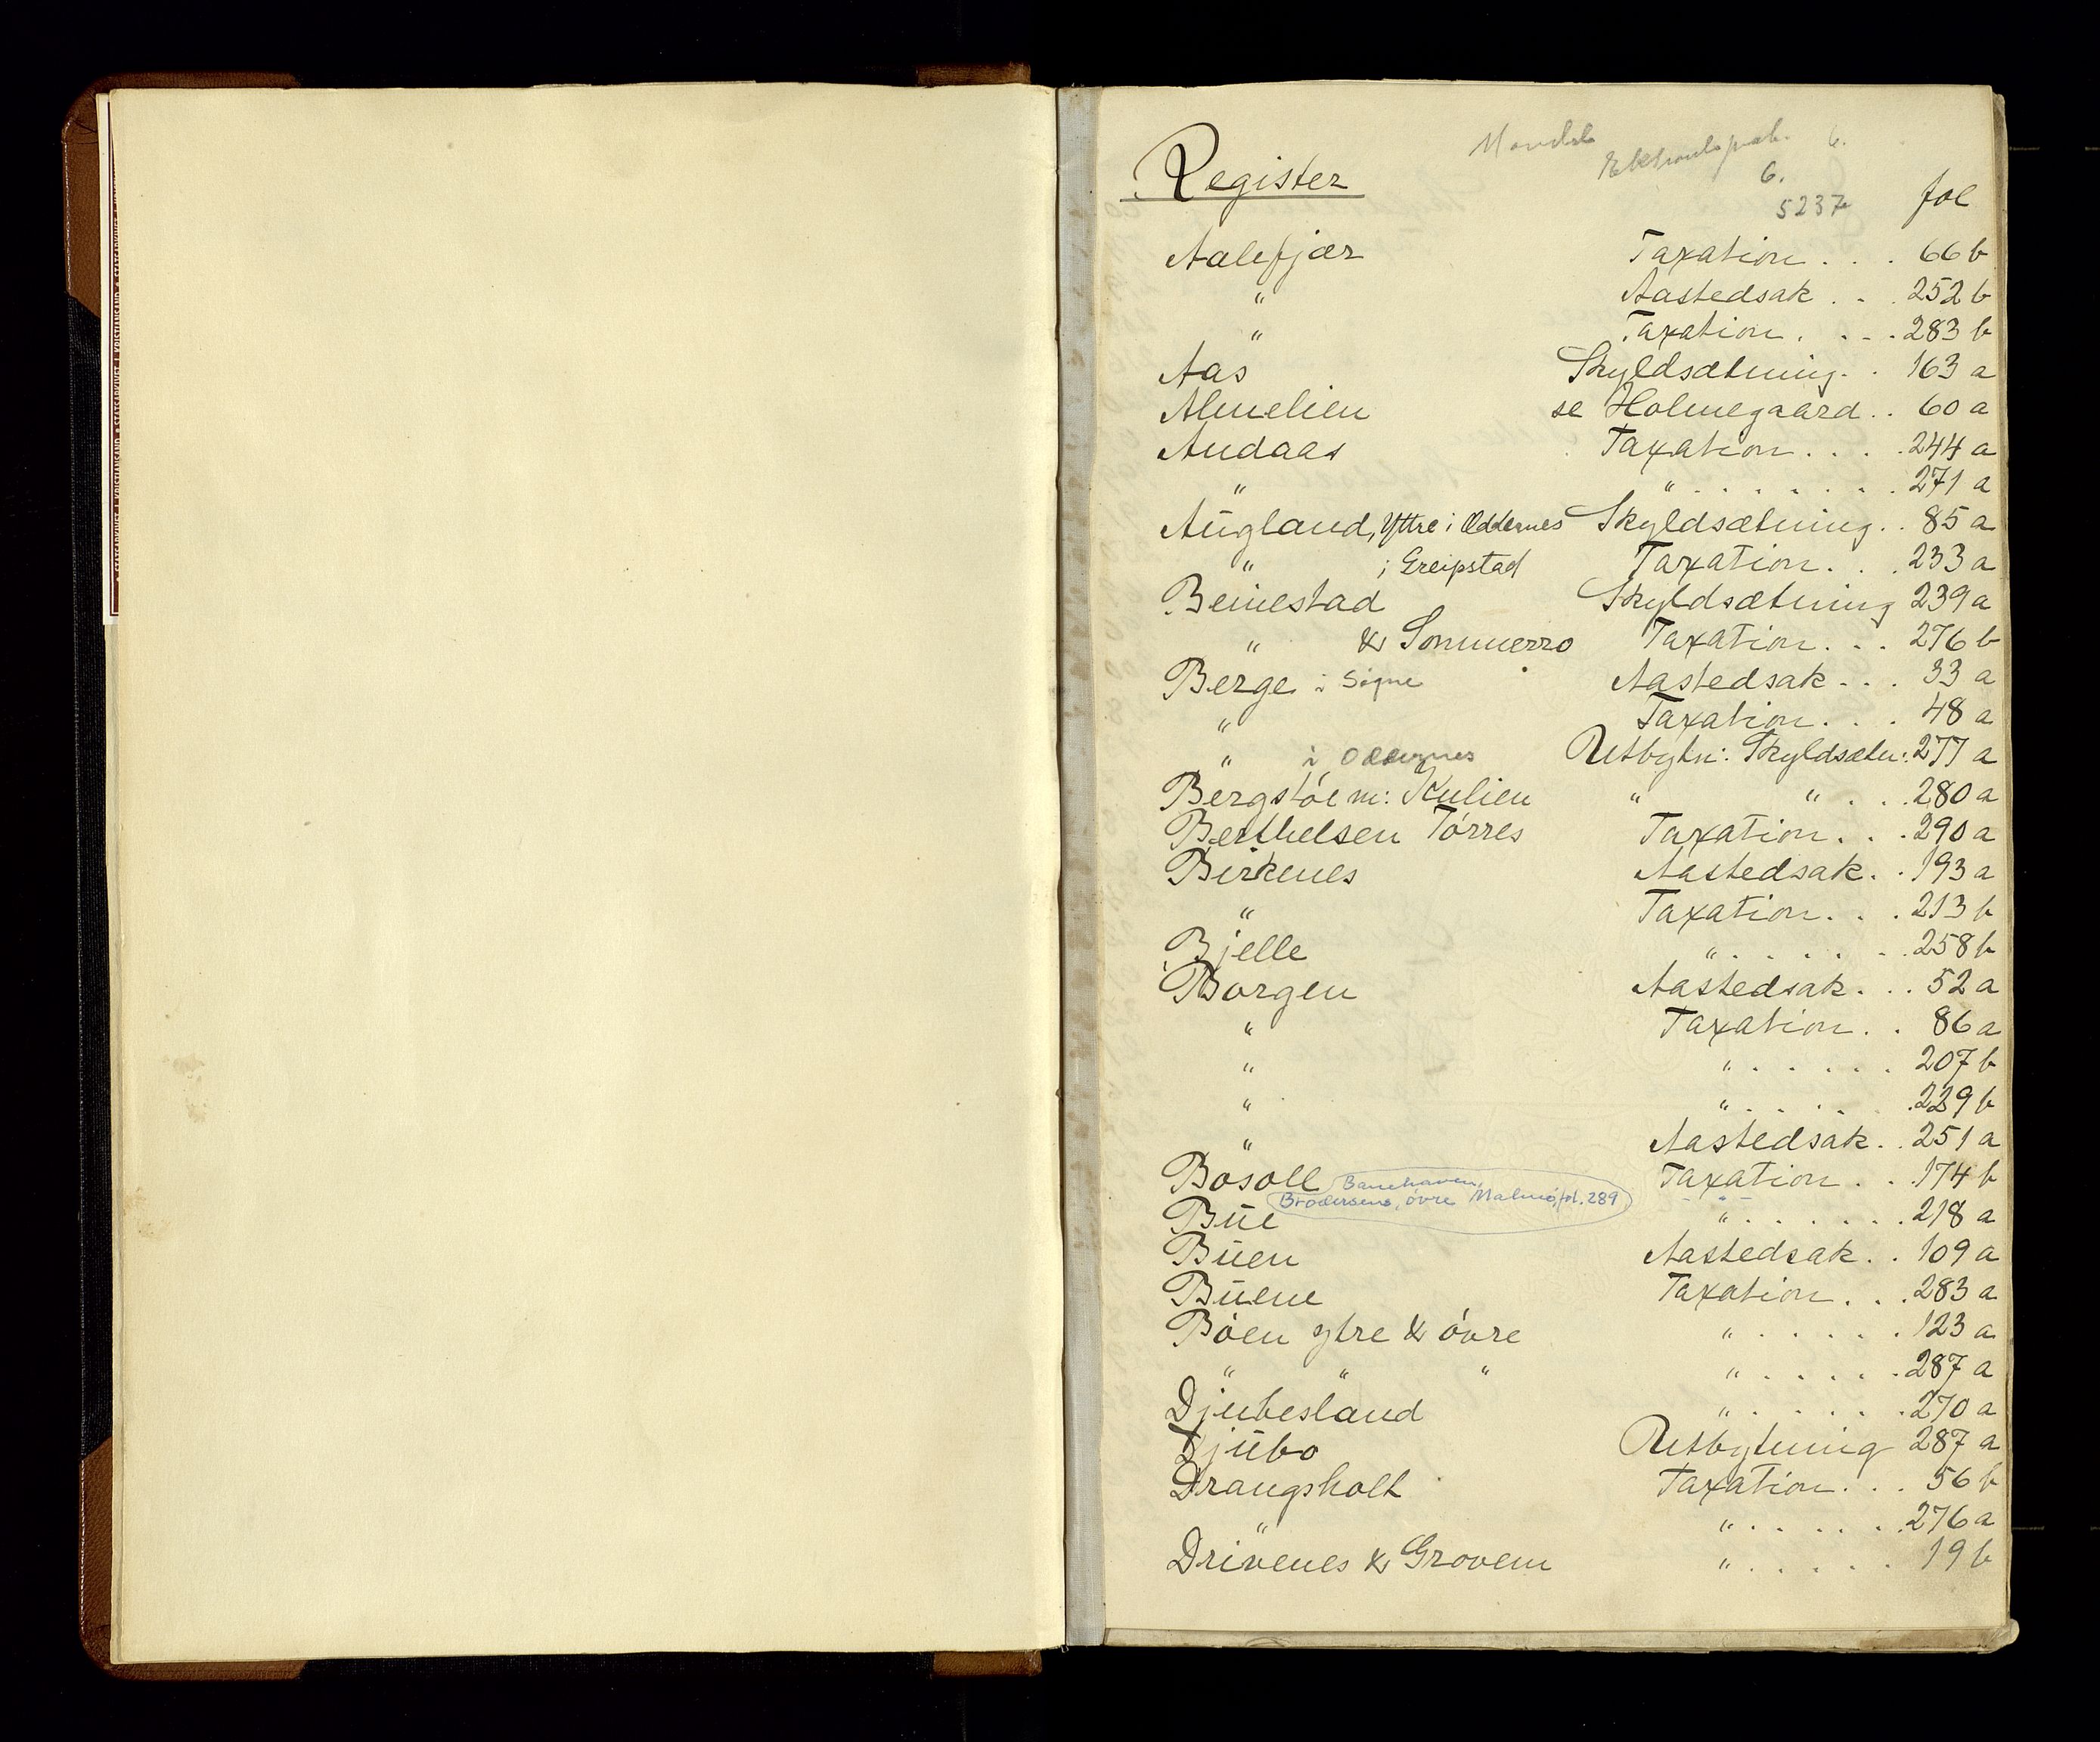 Mandals
Ekstraretsprot. 6.
Register 6.
5237 fol
Aalefjær Taxation . . . 66 b
" Aastedsak . . . 252 b
" Taxation . . . . 283 b
Aas Skyldsætning . . 163 a
Almelien se Holmegaard . . 60 a
Andaas Taxation . . . . 244 a
" " . . . . . . . 271 a
Augland, Yttre i Oddernes Skyldsætning . . 85 a
" i Greipstad Taxation . . . 233 a
Beinestad Skyldsætning 239 a
" & Sommerro Taxation . . . 276 b
Berge i Søgne Aastedsak . . . 33 a
" Taxation . . . 48 a
" i Oddernes Utbytn: Skyldsætn: 277 a
Bergstøl m: Kulien " " . . . 280 a
Berthelsen Tørres Taxation . . . 290 a
Birkenes Aastedsak . . 193 a
" Taxation . . . 213 b
Bjelle " . . . . . . 258 b
Borgen Aastedsak . . . 52 a
" Taxation . . 86 a
" " . . . . . . 207 b
" " . . . . . 229 b
" Aastedsak . . 251 a
Bosoll Taxation . . . 174 b
Banehaven,
Brodersens, øvre Malmø, fol. 289
Bue " . . . . . . 218 a
Buen Aastedsak . . 109 a
Buene Taxation . . . 283 a
Bøen ytre & øvre " . . . . . . 123 a
" " " " . . . . . . 287 a
Djubesland " . . . . . . 270 a
Djubo Utbytning 287 a
Drangsholt Taxation . . . 56 b
" " . . . . . . 276 a
Drivenes & Grovem " . . . . . . 19 b